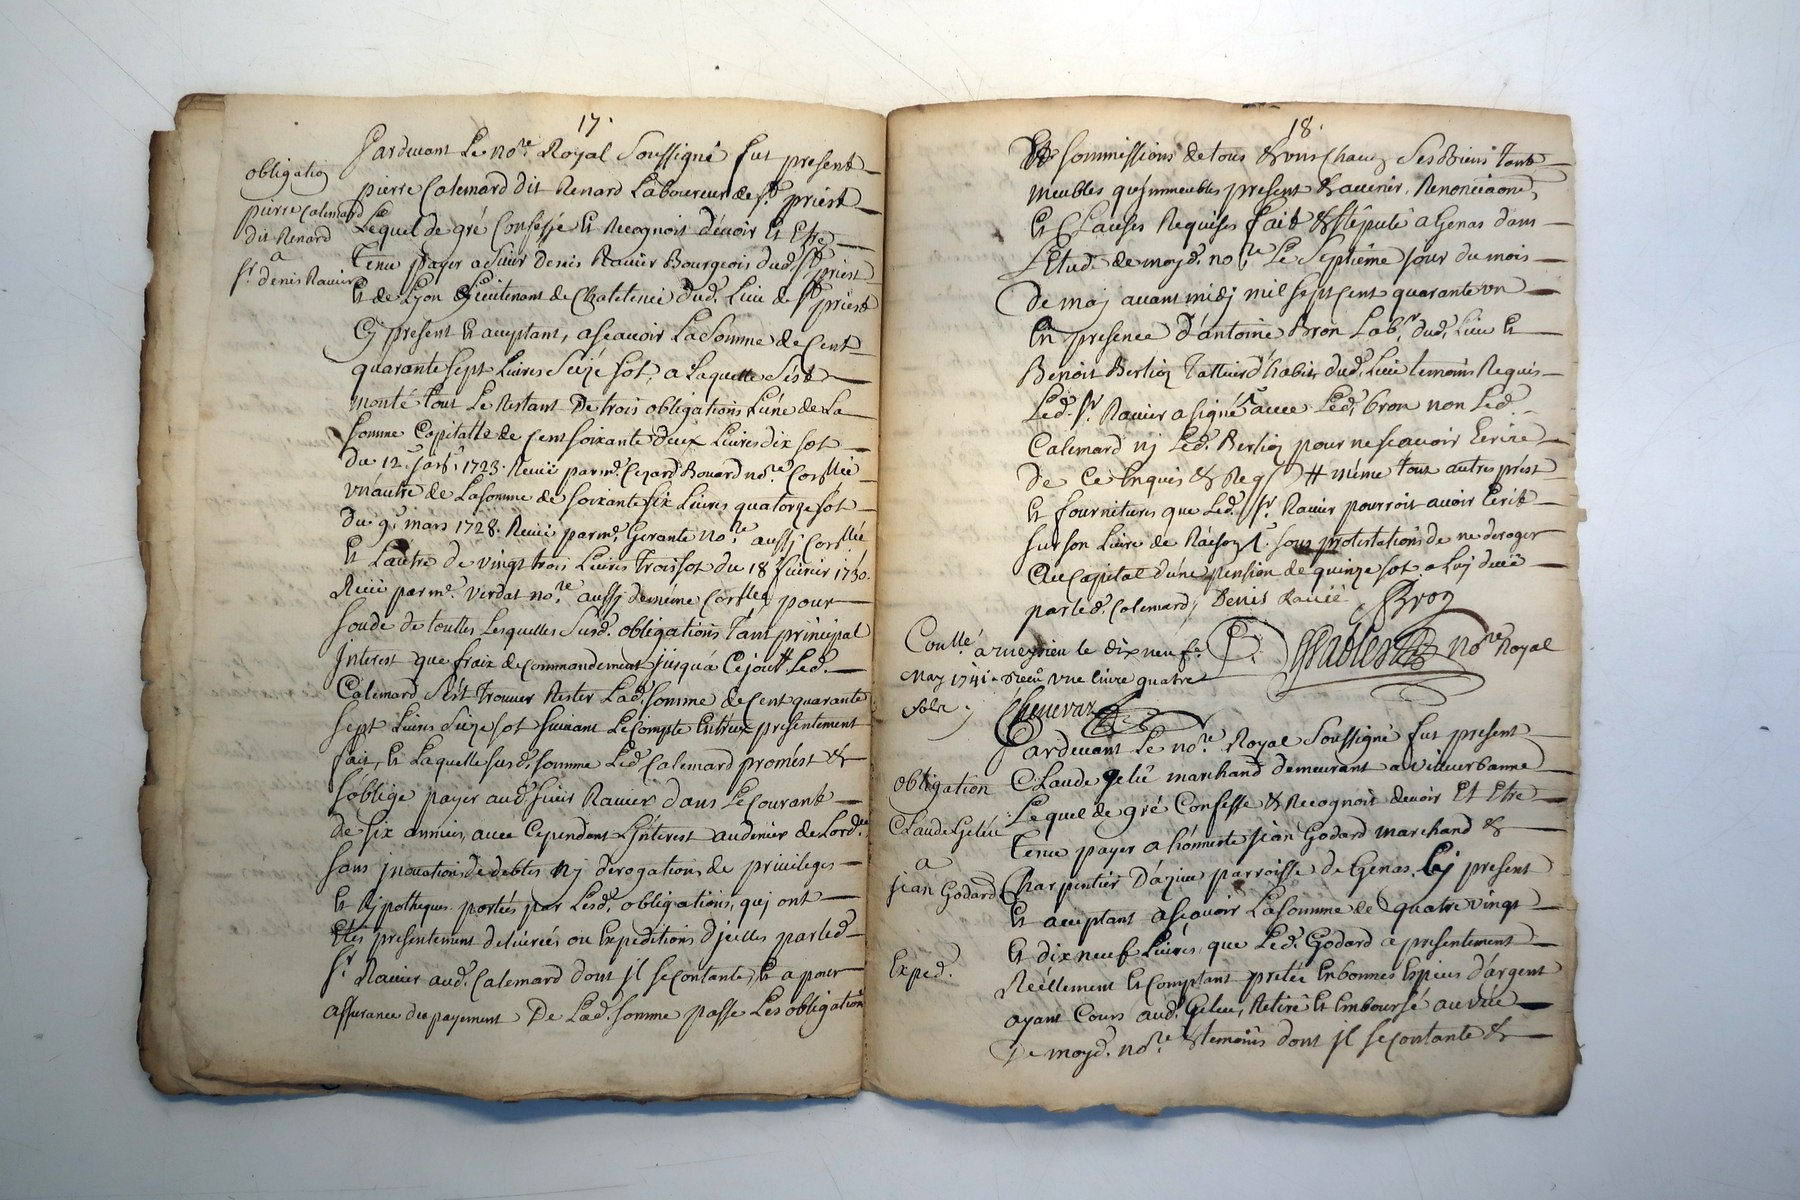 17.
obligation
pierre Calemard
dit Renard
a
Sr. denis Ravier
Pardevant Le nore. Royal Soussigné fut present
pierre Calemard dit Renard Laboureur de St. priest
Lequel de gré Confesse Et Recognoit devoir Et Etre
Tenu payer a Sieur Denis Ravier Bourgeois dud. St. priest
Et de Lyon Lieutenant de Chatelenie dud. Lieu de St. priest
Cy present Et acceptant, ascavoir La Somme de Cent
quarante Sept Livres Seize Sot, a Laquelle S'est
monté tout Le Restant De trois obligations L'une de La
Somme Capitalle de Cent Soixante deux Livres dix Sot
du 12. 1723. Receu par me. Cezard Bouard nore.
un autre de La Somme de Soixante Six Livres quatorze Sot
du 9e. mars 1728. Receu par me. Gerante nore. aussy
Et L'autre de vingt trois Livres Trois Sot du 18 fevrier 1730.
Receu par me. Verdat nore. aussy de meme pour
Soude de touttes Lesquelles Susd. obligations Tant principal
Interest que fraix de Commandement jusqu'a Cejourd. Led.
Calemard S'est Trouver Rester Lad. Somme de Cent quarante
Sept Livres Seize Sot Suivant Le Compte Entreux presentement
fait, Et Laquelle Susd. Somme Led. Calemard promest &
S'oblige payer aud. Sieur Ravier dans Le Courant
de Six années, avec Cependant L'interest au denier de L'ordce.
Sans jnovations de debtes nj derogations de privileges
Et hypotheques portées par Lesd. obligations, quj ont
Etés presentement delivrées ou Expeditions d'jcelles par led.
Sr. Ravier aud. Calemard dont jl Se contante, Et a pour
assurance du payement De Lad. Somme passe Les obligations
18.
Et Sommissions de tous & uns Chacuns Ses Biens Tant
meubles qu'jmmeubles present & avenir, Renonciaons,
Et Clauses Requises fait & Stepulé a Genas dans
L'Etude de moyd. nore. Le Septième jour du mois
De maj avant midj mil Sept Cent quarante un
En presence d'antoine Bron Labr. dud. Lieu Et
Benoit Berlioz Tallieur d'habits dud. Lieu temoins Requis
Led. Sr. Ravier a Signé avec Led. bron non Led.
Calemard nj Led. Berlioz pour ne Scavoir Ecrire
De Ce Enquis & Reqs # même tout autres prest
Et fournitures que Led. Sr. Ravier pourroit avoir Ecrit
Sur Son Livre de Raison. Sous protestations de ne deroger
Au Capital d'une pension de quinze Sot a Luj düe
par led. Calemard, Denis Ravié Bron
nore Royal
Conllé. a meyzieu le dix neufe.
May 1741. Receu une livre quatre
Sols
Chenevaz
obligation
Claude Gelin
a
jean Godard
Exped.
Pardevant Le nore. Royal Soussigné fut present
Claude Gelin marchand demeurant a Villeurbanne
Lequel de gré Confesse & Recognoit devoir Et Etre
Tenu payer a honneste jean Godard marchand &
Charpentier D'azieu parroisse de Genas Cy present
Et acceptant ascavoir La Somme de quatre vingt
Et dix neuf Livres, que Led. Godard a presentement
Réellement Et Comptant pretée En bonnes Espices d'argent
ayant Cours aud. Gelin, Retiré Et Emboursé au vüe
De moyd. nore. & temoins dont jl Se contante &